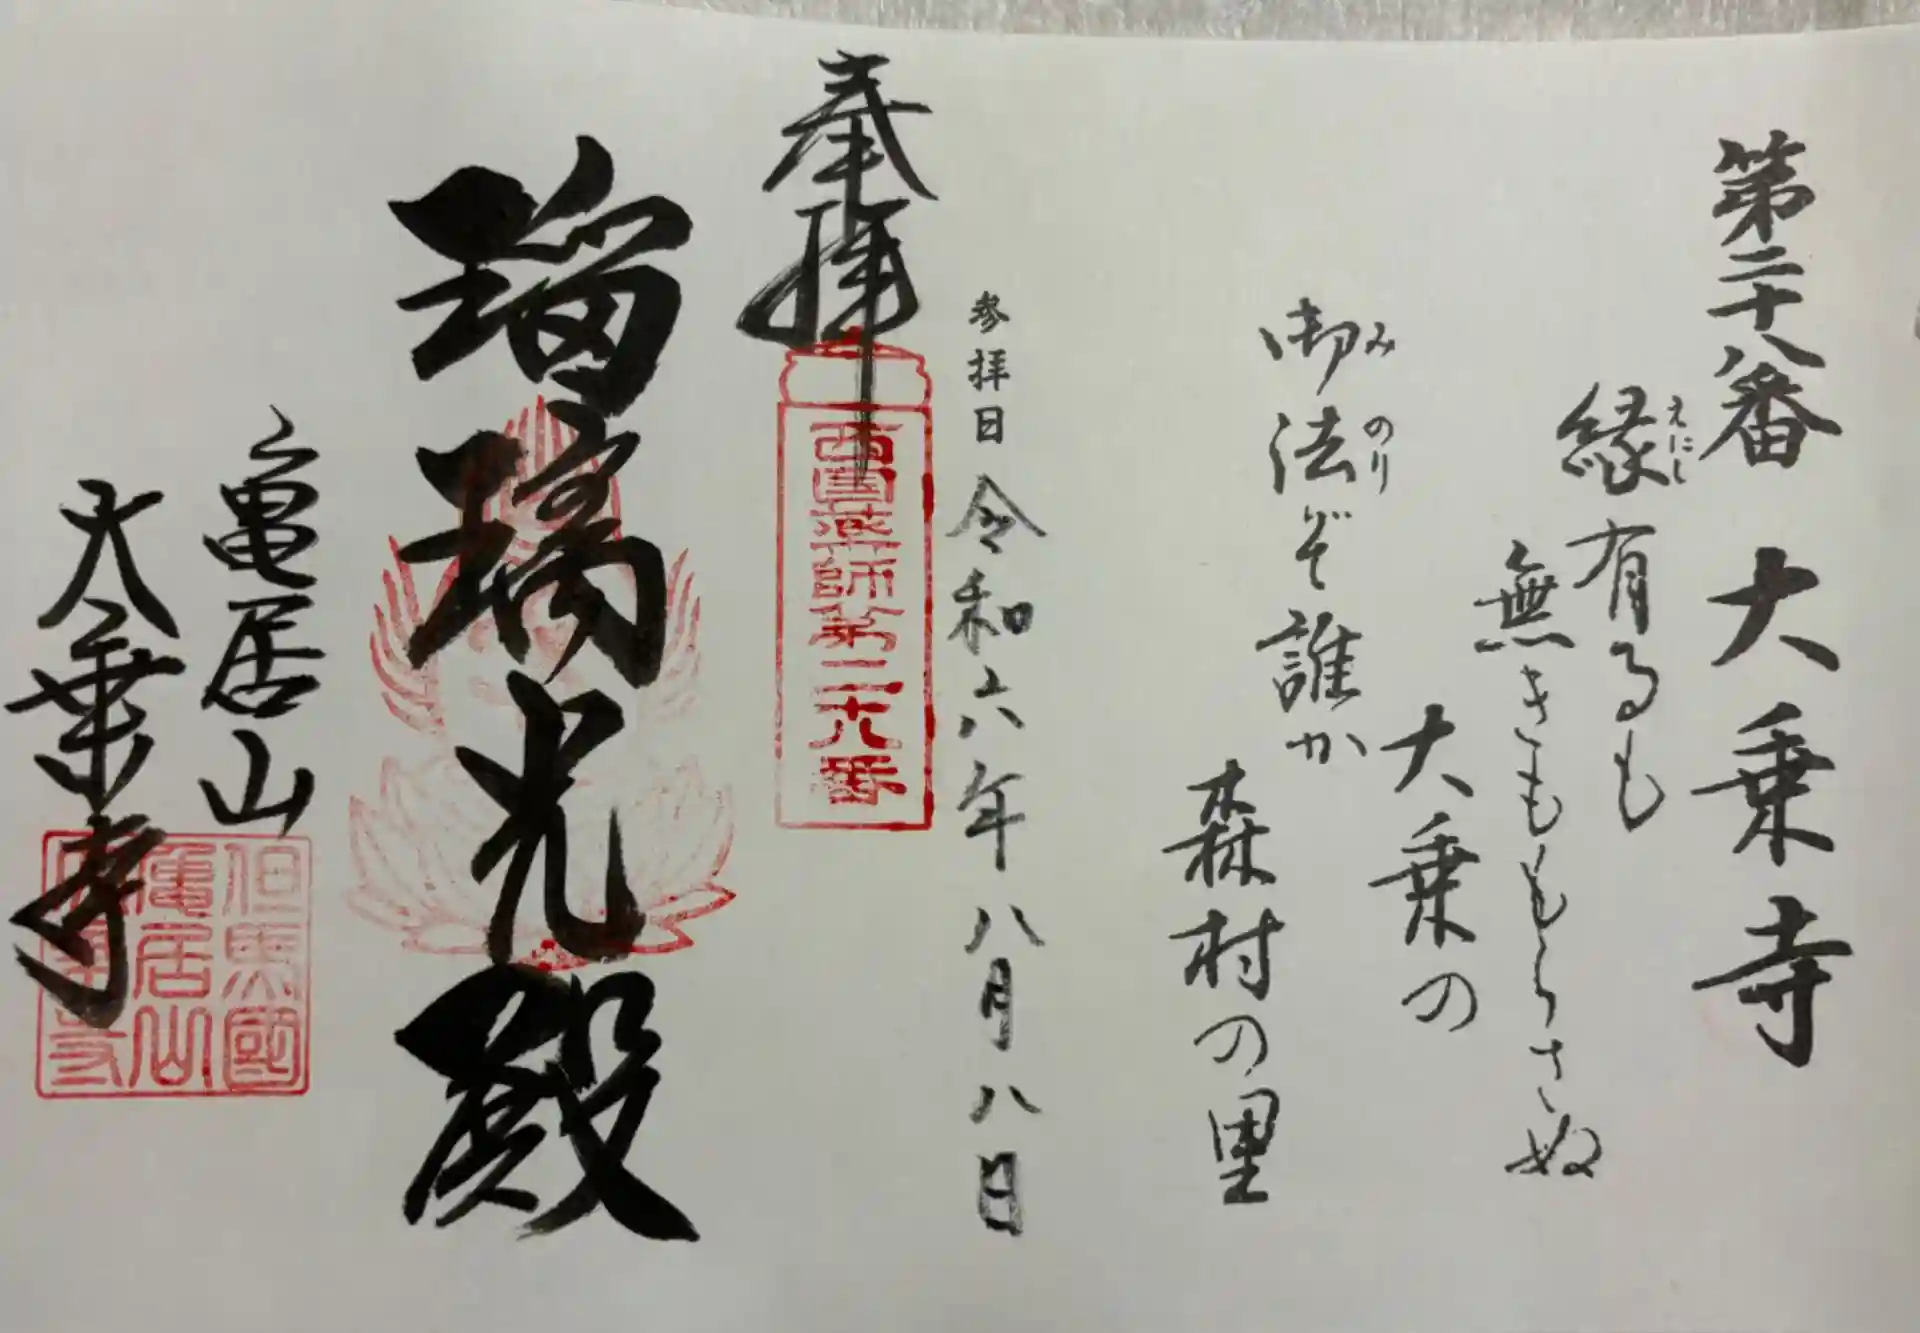 第二十八番 大乗寺
縁有るも
えにし
無きももらさぬ
大乗の
御法ぞ誰か
みのり
森村の里
参拝日 令和六年八月八日
奉拝
西国薬師第二十八番
瑠璃光殿
亀居山
大乗寺
但馬國
亀居山